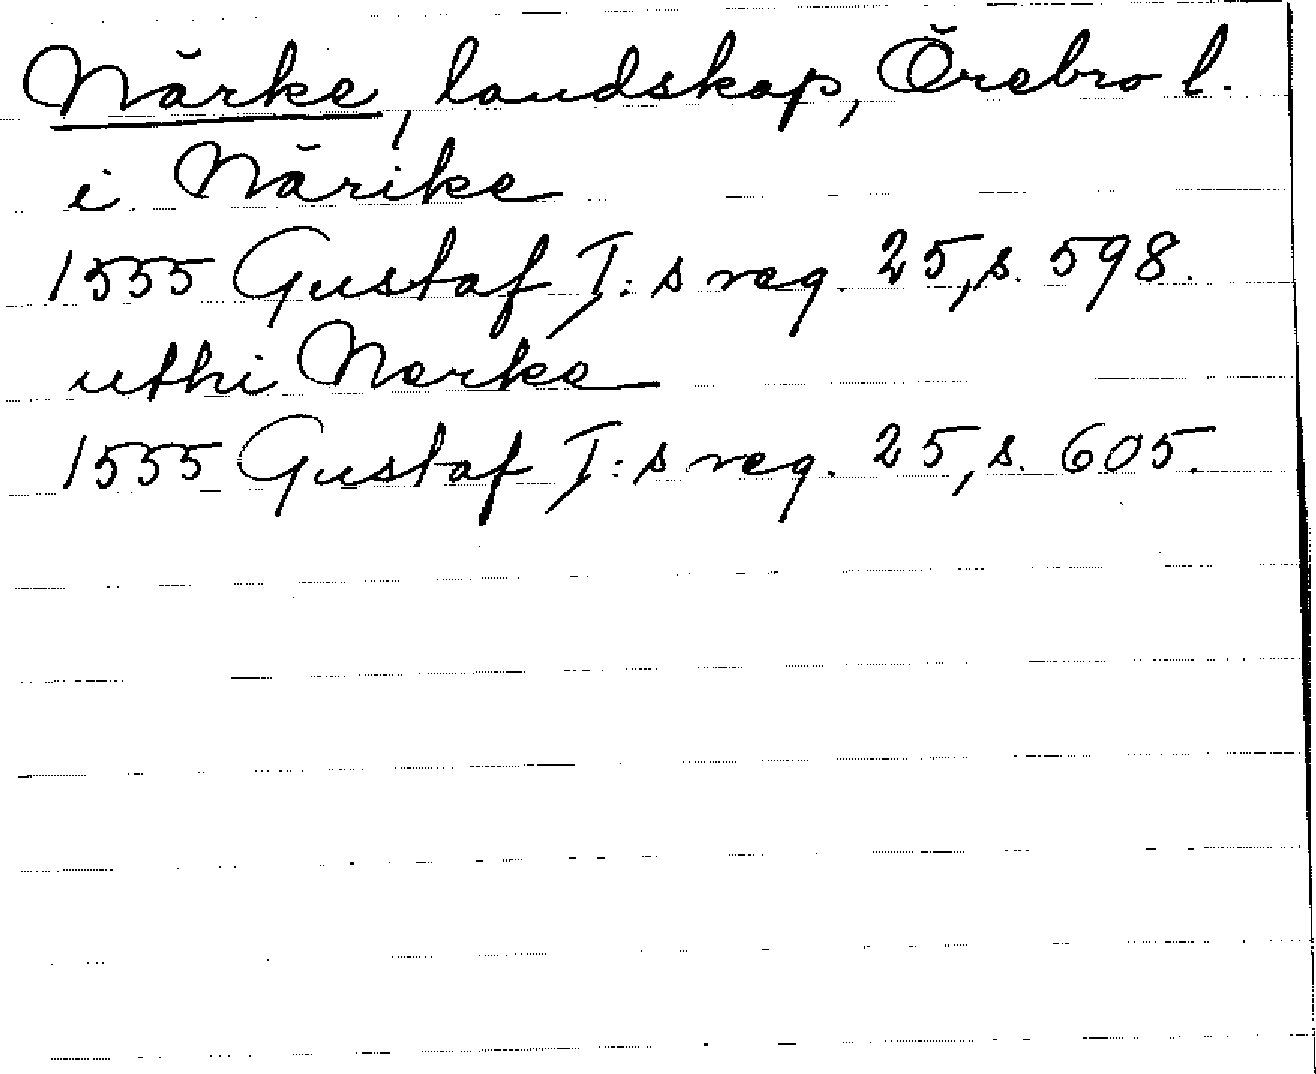 Närke, landskap, Örebro l.
i Närike
1555 Gustaf I:s reg. 25, s. 598.
uthi Nerke
1555 Gustaf I:s reg. 25, s. 605.